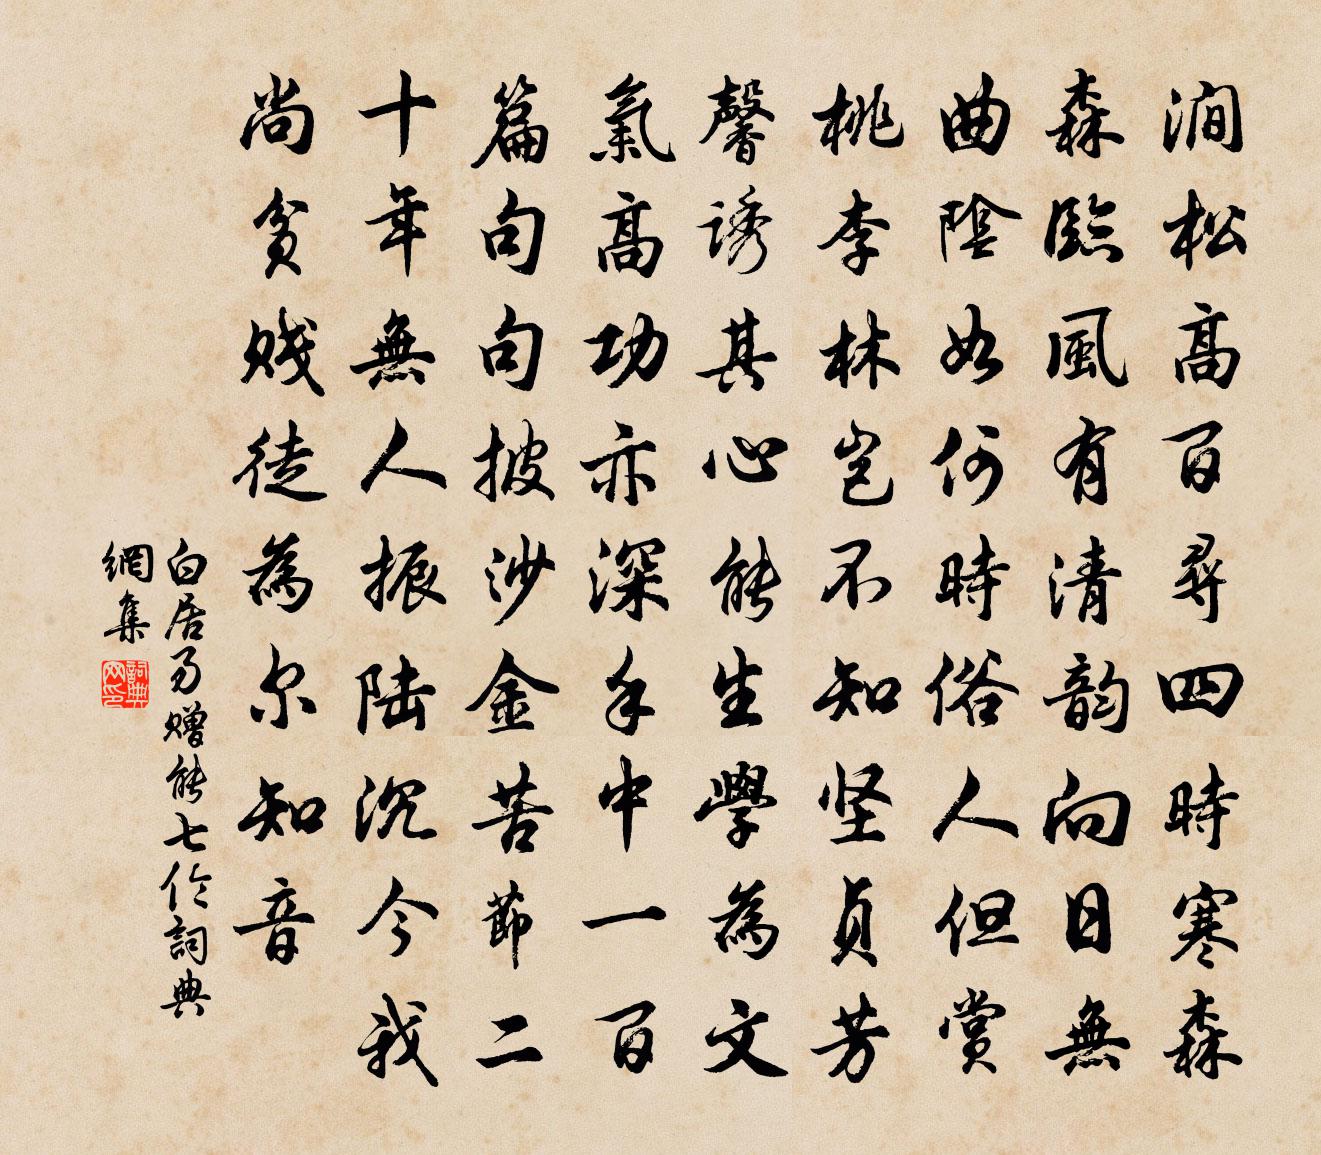 澗松高百尋四時寒森
森臨風有清韵向日無
曲陰如何時俗人但賞
桃李林岂不知坚貞芳
馨誘其心能生學為文
氣高功亦深手中一百
篇句句披沙金苦節二
十年無人振陆沉今我
尚貧賤徒為尔知音
白居易贈能七伦詞典
網集
詞典
网印